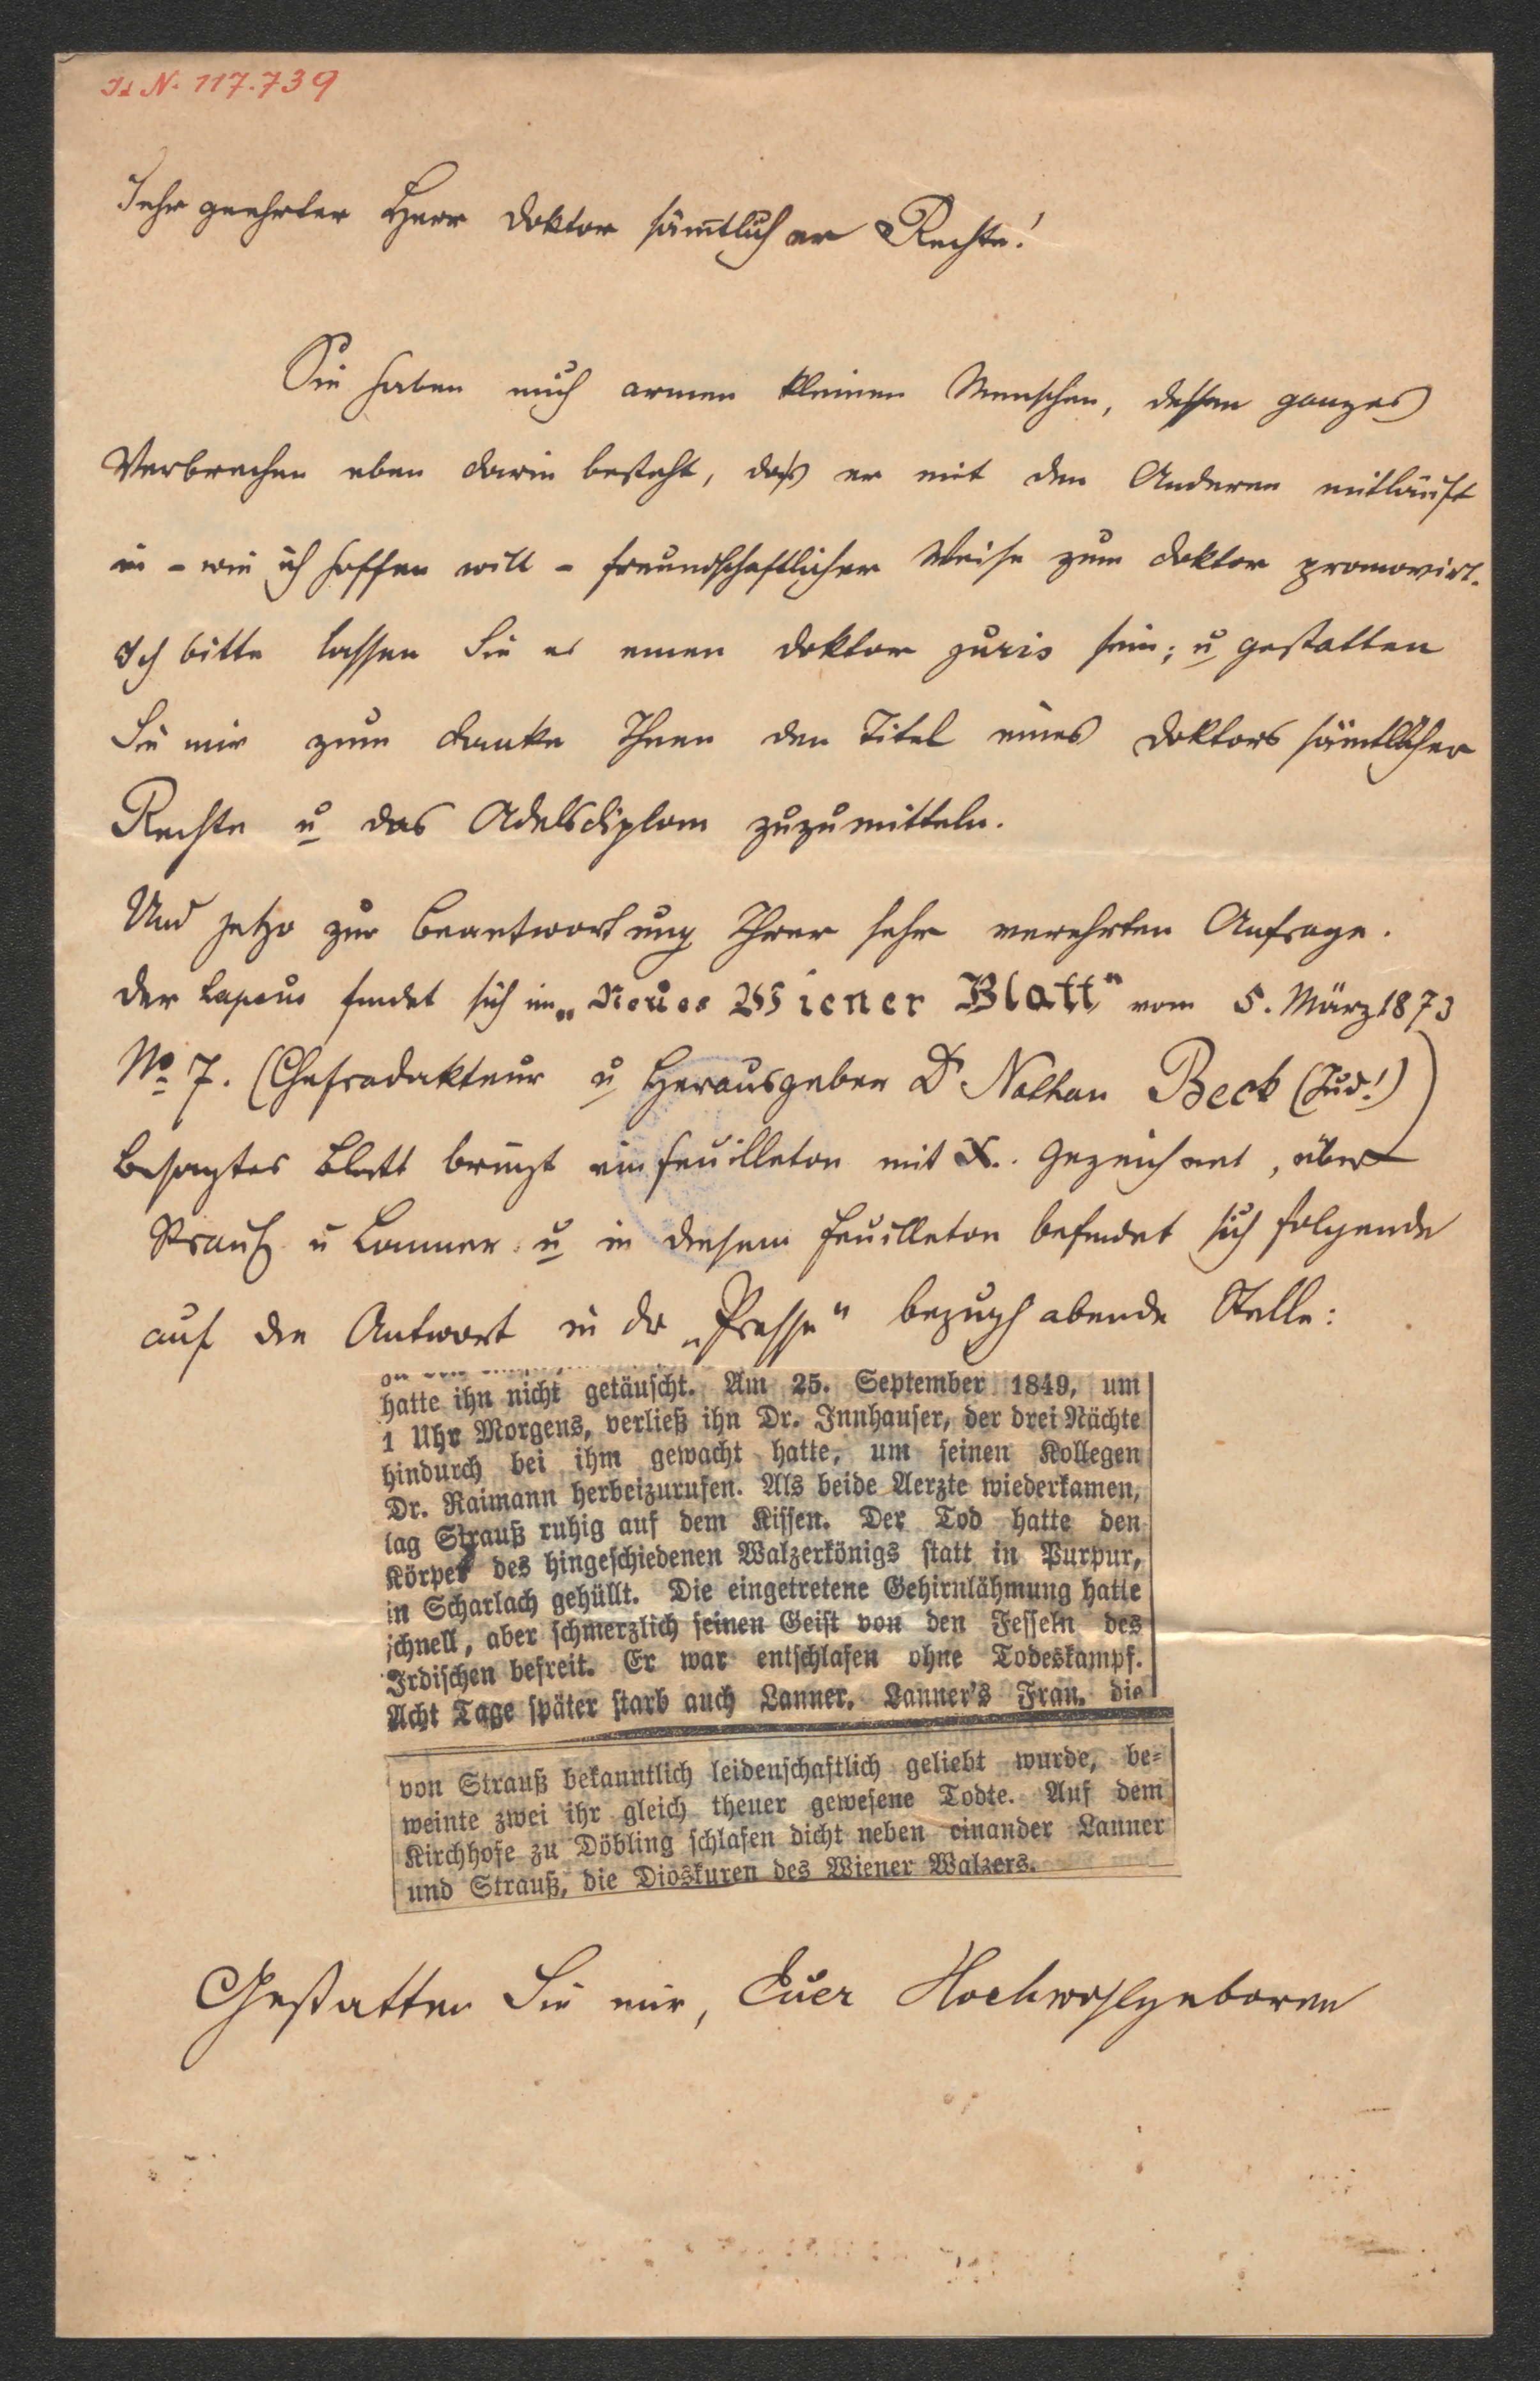 I. N. 117.739
Sehr geehrter Herr Doktor sämtlicher Rechte!
Sie haben mich armen kleinen Menschen, dessen ganzes
Verbrechen eben darin besteht, daß er mit den Anderen mitläuft
in - wie ich hoffen will - freundschaftlicher Weise zum Doktor promovirt.
Ich bitte lassen Sie es einen Doktor juris sein; u gestatten
Sie mir zum Danke Ihnen den Titel eines Doktors sämtlicher
Rechte u das Adelsdiplom zuzumitteln.
Und jetzo zur Beantwortung Ihrer sehr verehrten Anfrage.
Der Lapsus findet sich im „Neues Wiener Blatt" vom 5. März 1873
No 7. (Chefredakteur u Herausgeber Dr Nathan Beck (Jud!))
Besagtes Blatt bringt ein Feuilleton mit X.. gezeichnet, über
Strauß u Lanner u in diesem Feuilleton befindet sich folgende
auf die Antwort in der „Presse" bezughabende Stelle:
hatte ihn nicht getäuscht. Am 25. September 1849, um
1 Uhr Morgens, verließ ihn Dr. Innhauser, der drei Nächte
hindurch bei ihm gewacht hatte, um seinen Kollegen
Dr. Raimann herbeizurufen. Als beide Aerzte wiederkamen,
lag Strauß ruhig auf dem Kissen. Der Tod hatte den
Körper des hingeschiedenen Walzerkönigs statt in Purpur,
in Scharlach gehüllt. Die eingetretene Gehirnlähmung hatte
schnell, aber schmerzlich seinen Geist von den Fesseln des
Irdischen befreit. Er war entschlafen ohne Todeskampf.
Acht Tage später starb auch Lanner. Lanner's Frau, die
von Strauß bekanntlich leidenschaftlich geliebt wurde, be-
weinte zwei ihr gleich theuer gewesene Todte. Auf dem
Kirchhofe zu Döbling schlafen dicht neben einander Lanner
und Strauß, die Dioskuren des Wiener Walzers.
Gestatten Sie mir, Euer Hochwohlgeboren